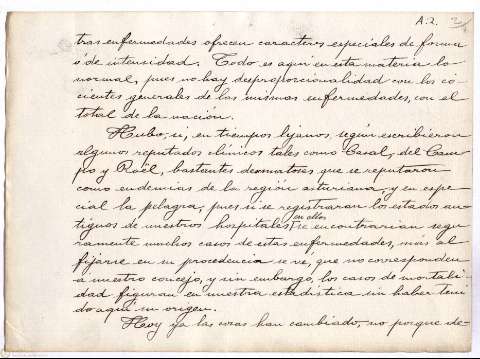 A.2. 2
tras enfermedades ofrecen caracteres especiales de forma
ó de intensidad. Todo es aquí en esta materia lo
normal, pues no hay desproporcionalidad con los co-
cientes generales de las mismas enfermedades, con el
total de la nación.
Hubo, si, en tiempos lejanos, según escribieron
algunos reputados clínicos tales como Casal, del Cam-
po y Roël, bastantes dermatosis que se reputaron
como endemias de la región asturiana, y en espe-
cial la pelagra, pues si se registraran los estados an-
tiguos de nuestros hospitales, en ellos se encontrarían segu-
ramente muchos casos de estas enfermedades, mas al
fijarse en su procedencia se vé, que no corresponden
a nuestro concejo, y sin embargo los casos de mortali-
dad figuran en nuestra estadística sin haber teni-
do aquí su origen.
Hoy ya las cosas han cambiado, no porque de-